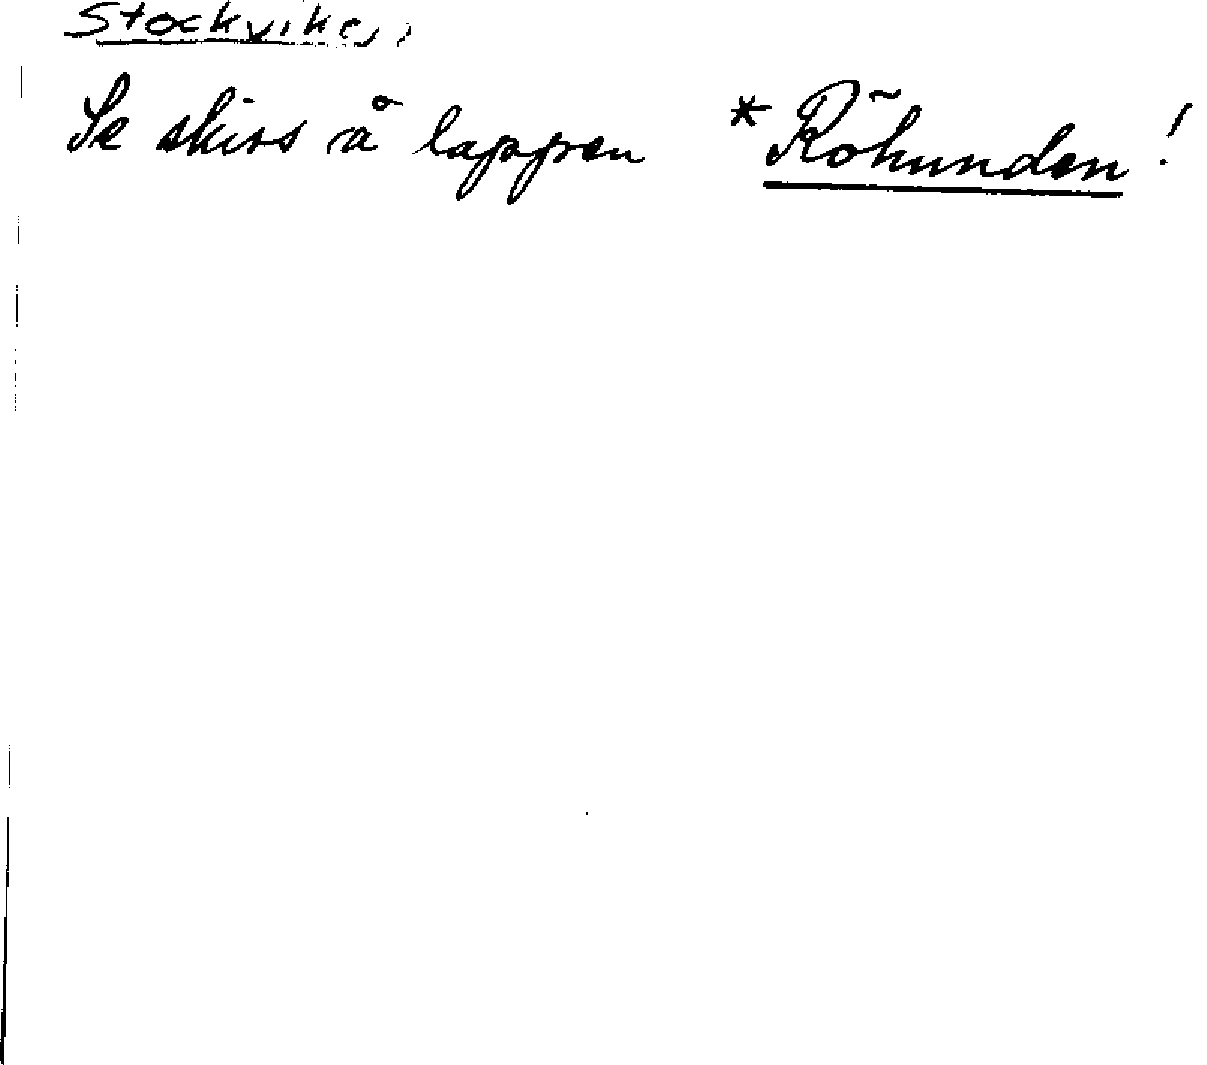 Stockviken
Se skiss å lappen * Röhunden!